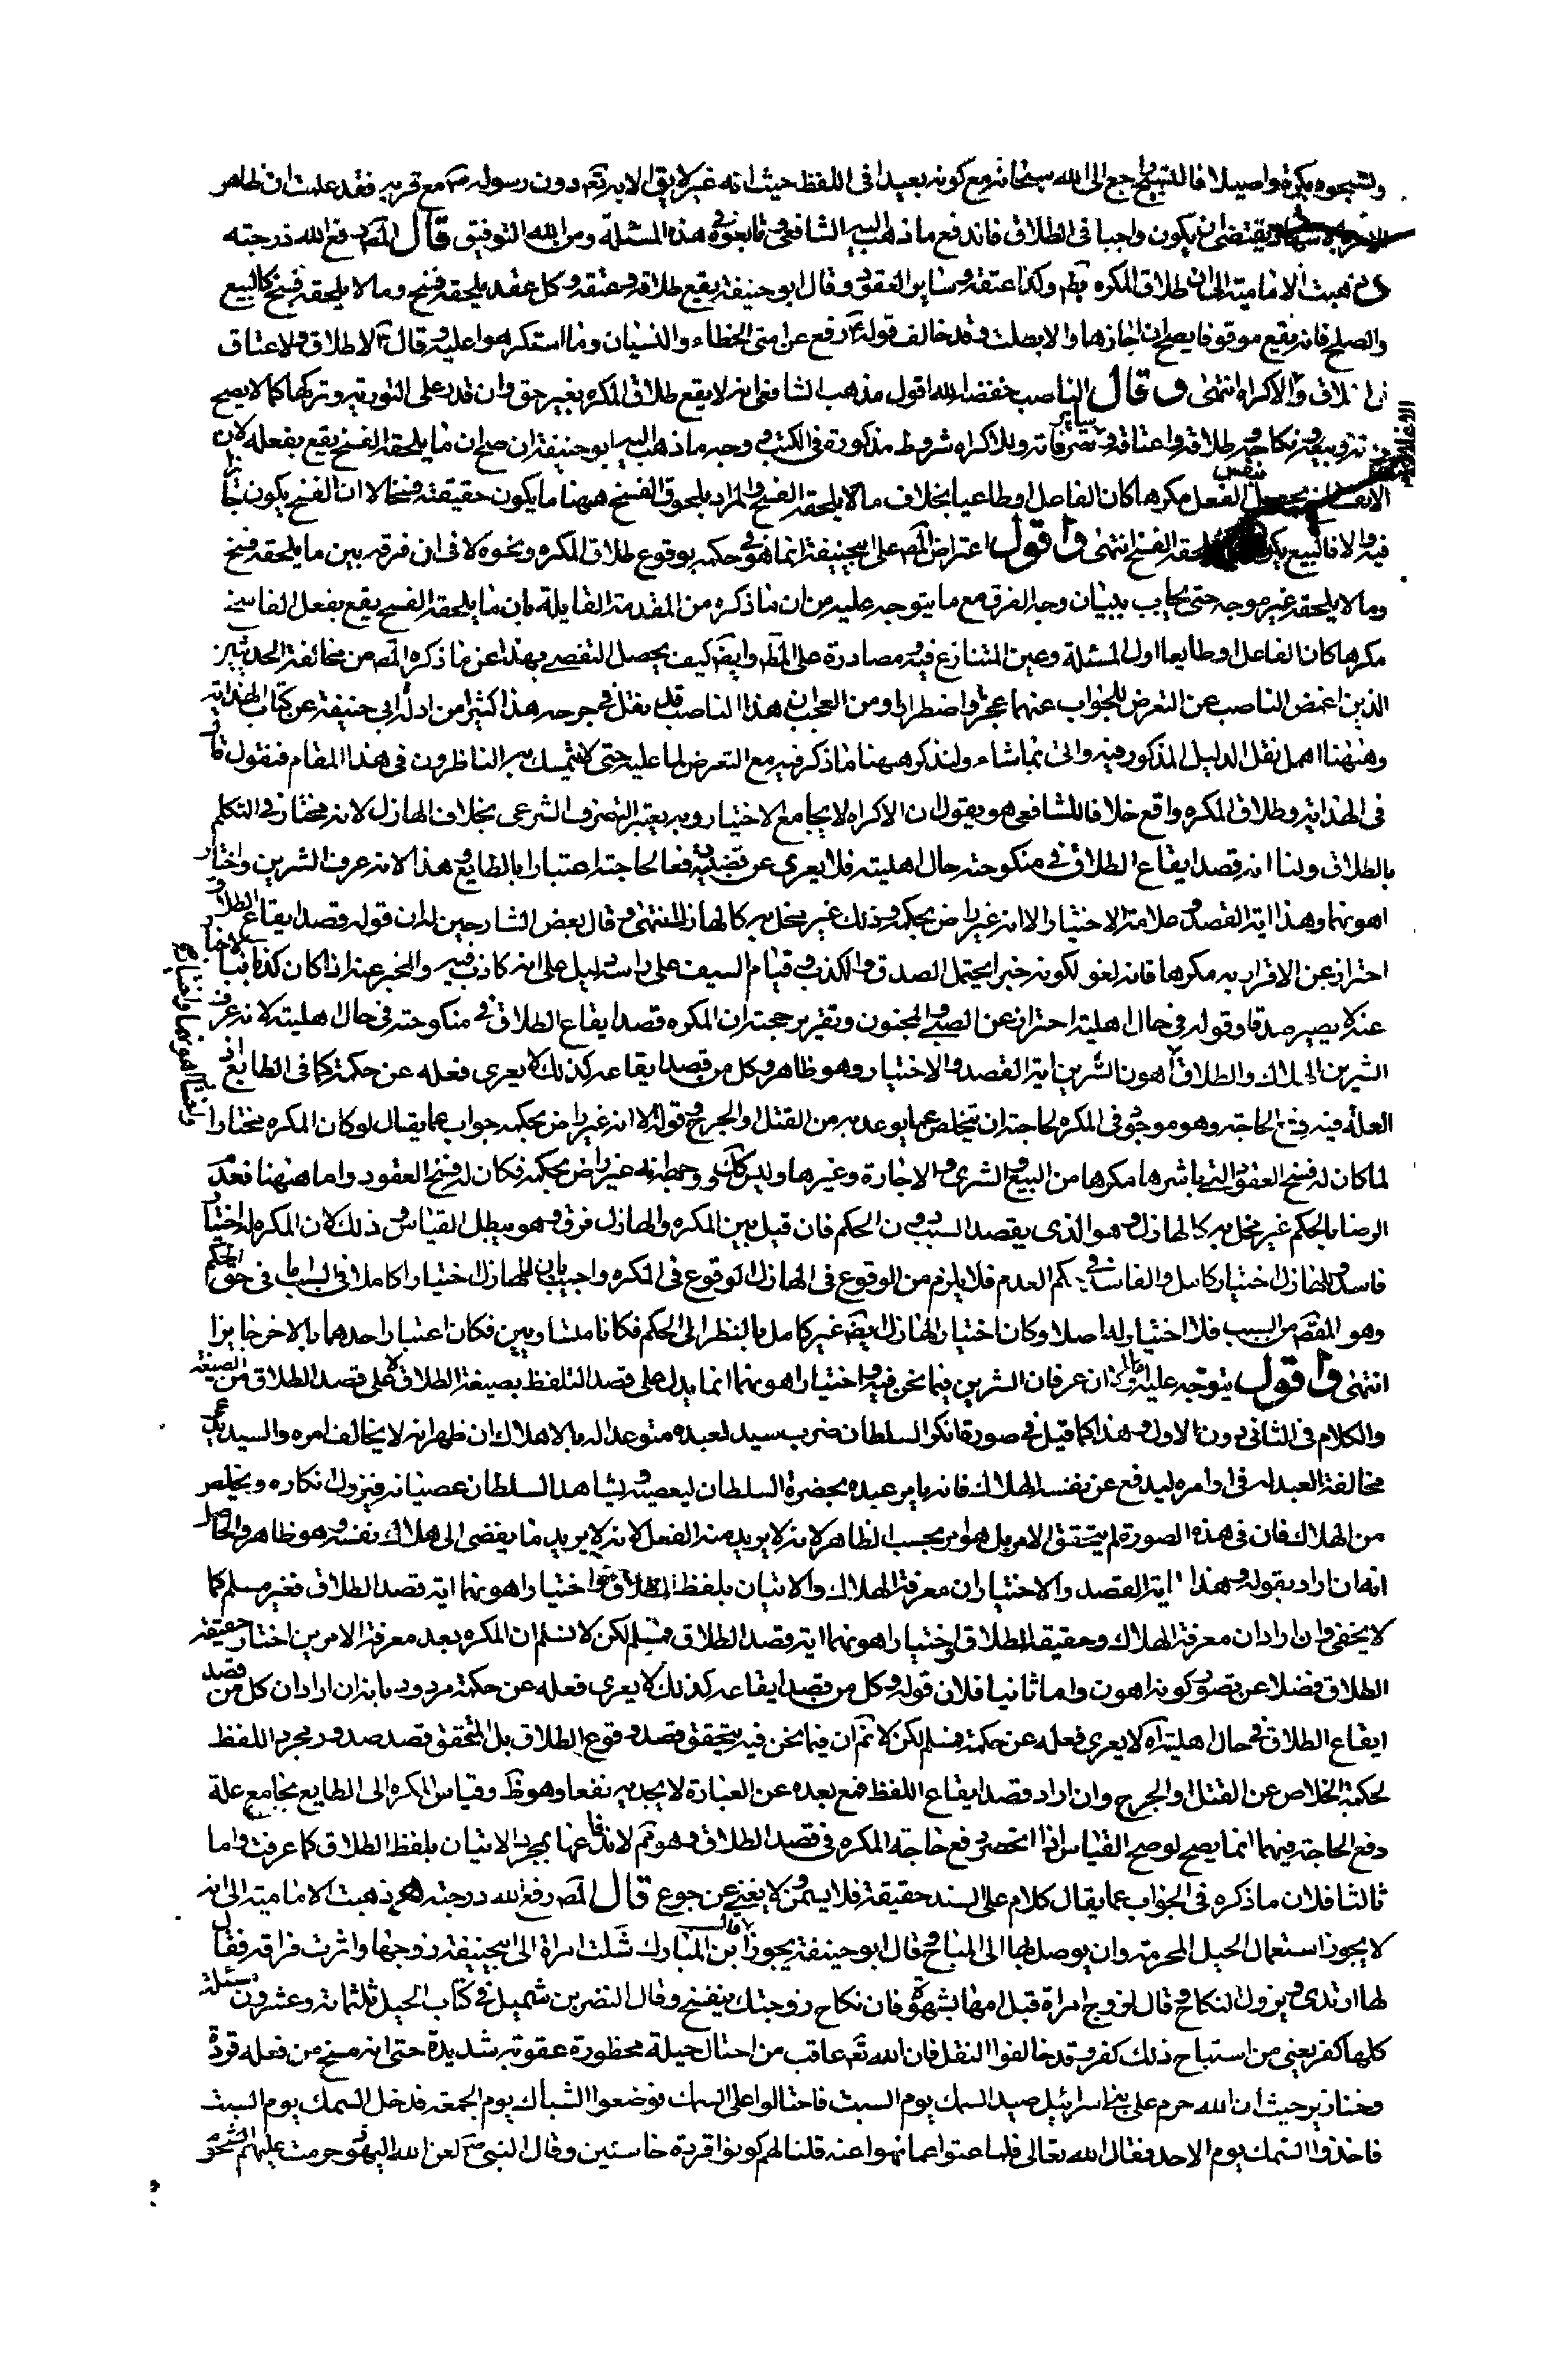 وتسبحوه بكرة واصيلا فالتسبيح راجع الى الله سبحانه مع كونه بعيدا فى اللفظ حيث انه غير لايق الا به تعه دون رسوله ص مع قربه فقد علمت ان ظاهر
الامر بالاشهاد يقتضى ان يكون واجبا فى الطلاق فاندفع ما ذهب اليه الشافعى وتابعوه فى هذه المسئلة ومن الله التوفيق قال المص رفع الله درجته
ذهبت الامامية الى ان طلاق المكره بط وكذا عتقه وساير العقود وقال ابو حنيفة يقع طلاقه وعتقه وكل عقد يلحقه فسخ وما لا يلحقه فسخ كالبيع
والصلح فانه يقع موقوفا يصح ان اجازها والا بطلت وقد خالف قوله ع رفع عن امتى الخطاء والنسيان وما استكرهوا عليه وقال ع لا طلاق ولا عتاق
فى اغلاق والاكراه انتهى وقال الناصب خفضه الله اقول مذهب الشافعى انه لا يقع طلاق المكره بغير حق وان قدر على التورية وتركها كما لا يصح
وبيعه ونكاحه وطلاقه واعتاقه وساير تصرفاته وللاكراه شروط مذكورة فى الكتب ووجه ما ذهب اليه ابو حنيفة ان صح ان ما يلحقه الفسخ يقع بفعله لان
بنفس الفعل مكرها كان الفاعل او طاعيا بخلاف ما لا يلحقه الفسخ والمراد بلحوق الفسخ ههنا ما يكون حقيقته فسخا لا ان الفسخ يكون
فيه والا فالبيع يلحقه الفسخ انتهى واقول اعتراض المص على ابيحنيفة انما هو فى حكمه بوقوع طلاق المكره ونحوه لا فى ان فرقه بين ما يلحقه فسخ
وما لا يلحقه غير موجه حتى يجاب ببيان وجه الفرق مع ما يتوجه عليه من ان ما ذكره من المقدمة القايلة بان ما يلحقه الفسخ يقع بفعل الفاسخ
مكرها كان الفاعل او طايعا اول المسئلة وعين المتنازع فيه ومصادرة على المط وايض كيف يحصل التفصى بهذا عن ما ذكره المص من مخالفة الحديثين
الذين اغمض الناصب عن التعرض للجواب عنهما عجزا واضطرارا ومن العجب ان هذا الناصب قد نقل فى جرحه هذا كثيرا من ادلة ابى حنيفة عن كتاب الهداية
وههنا اهمل نقل الدليل المذكور فيه واتى بما شاء ولنذكر ههنا ما ذكر فيه مع التعرض لما عليه حتى لا يتمسك به الناظرون فى هذا المقام فنقول قال
فى الهداية وطلاق المكره واقع خلافا للشافعى هو يقول ان الاكراه لا يجامع الاختيار وبه يعتبر التصرف الشرعى بخلاف الهازل لانه مختار فى التكلم
بالطلاق ولنا انه قصد ايقاع الطلاق فى منكوحته حال اهليته فلا يعرى عن قضيته دفعا لحاجته اعتبارا بالطايع وهذا لانه عرف الشرين واختار
اهونهما وهذا اية القصد وعلامة الاختيار الا انه غير راض بحكمه وذلك غير مخل به كالهازل انتهى وقال بعض الشارحين له ان قوله قصد ايقاع الطلاق
احتراز عن الاقرار به مكرها فانه لغو لكونه خبرا يحتمل الصدق والكذب وقيام السيف على راسه دليل على انه كاذب فيه والمخبر عنه اذا كان كذبا فبالاخبار
عنه لا يصير صدقا وقوله فى حال اهليته احتراز عن الصبى والمجنون وتقرير حجته ان المكره قصد ايقاع الطلاق فى منكوحته فى حال اهليته لانه عرف
الشرين الهلاك والطلاق واختيار اهونهما واختيار اهون الشرين اية القصد والاختيار وهو ظاهر وكل من قصد ايقاعه كذلك لا يعرى فعله عن حكمه كما فى الطايع اذ
العلة فيه دفع الحاجة وهو موجود فى المكره لحاجته ان يتخلص عما يوعد به من القتل او الجرح وقوله الا انه غير راض بحكمه جواب عما يقال لو كان المكره مختارا
لما كان له فسخ العقود التى باشرها مكرها من البيع والشرى والاجارة وغيرها وليس كك ووجهه انه غير راض بحكمه فكان له فسخ العقود واما ههنا فعدم
الرضا بالحكم غير مخل به كالهازل وهو الذى يقصد السبب دون الحكم فان قيل بين المكره والهازل فرق وهو يبطل القياس وذلك لان المكره له اختيار
فاسد وللهازل اختيار كامل والفاسد فى حكم العدم فلا يلزم من الوقوع فى الهازل الوقوع فى المكره واجيب بان للهازل اختيارا كاملا فى السبب اما فى حق الحكم
وهو المقصود من السبب فلا اختيار له اصلا وكان اختيار الهازل ايض غير كامل بالنظر الى الحكم فكانا متساويين فكان اعتبار احدهما بالاخر جايزا
انتهى واقول يتوجه عليه اولا ان عرفان الشرين فيما نحن فيه واختيار اهونهما انما يدل على قصد التلفظ بصيغة الطلاق لا على قصد الطلاق من الصيغة
والكلام فى الثانى دون الاول وهذا كما قيل فى صورة انكر السلطان ضرب سيد لعبده متوعدا له بالاهلاك ان ظهر انه لا يخالف امره والسيد يدعى
مخالفة العبد له فى اوامره ليدفع عن نفسه الهلاك فانه يامر عبده بحضرة السلطان ليعصيه ويشاهد السلطان عصيانه فيزول انكاره ويخلص
من الهلاك فان فى هذه الصورة لم يتحقق الامر بل هو امر بحسب الظاهر لانه لا يريد منه الفعل لانه لا يريد ما يفضى الى هلاك نفسه وهو ظاهر والحاصل
انه ان اراد بقوله وهذا اية القصد والاختيار ان معرفة الهلاك والاتيان بلفظ الطلاق واختيار اهونهما اية قصد الطلاق فغير مسلم كما
لا يخفى وان اراد ان معرفة الهلاك وحقيقة الطلاق واختيار اهونهما اية قصد الطلاق فمسلم لكن لا نسلم ان المكره بعد معرفة الامرين اختار حقيقة
الطلاق فضلا عن تصور كونه اهون واما ثانيا فلان قوله وكل من قصد ايقاعه كذلك لا يعرى فعله عن حكمه مردود بانه ان اراد ان كل من قصد
ايقاع الطلاق فى حال اهليته اه لا يعرى فعله عن حكمه فمسلم لكن لا نم ان فيما نحن فيه يتحقق قصد وقوع الطلاق بل المتحقق قصد صدور مجرد اللفظ
لحكمة الخلاص عن القتل او الجرح وان اراد قصد ايقاع اللفظ فمع بعده عن العبارة لا يجديه نفعا وهو ظ وقياس المكره الى الطايع بجامع علة
دفع الحاجة فيهما انما يصح لو صح القياس اذا انحصر دفع حاجة المكره فى قصد الطلاق وهو مم لاندفاعها بمجرد الاتيان بلفظ الطلاق كما عرفت واما
ثالثا فلان ما ذكره فى الجواب عما يقال كلام على السند حقيقة فلا يسمن ولا يغنى عن جوع قال المص رفع الله درجته ذهبت الامامية الى انه
لا يجوز استعمال الحيل المحرمة وان يوصل بها الى المباح وقال ابو حنيفة يجوز قال ابن المبارك شكت امراة الى ابيحنيفة زوجها واثرت فراقه فقال
لها ارتدى ويزول النكاح وقال لزوج امراة قبل امها بشهوة فان نكاح زوجتك ينفسخ وقال النضر بن شميل فى كتاب الحيل ثلثمائة وعشرون مسئلة
كلها كفر يعنى من استباح ذلك كفر وقد خالفوا النقل فان الله تعه عاقب من احتال حيلة محظورة عقوبة شديدة حتى انه مسخ من فعله قردة
وخنازير حيث ان الله حرم على بنى اسرائيل صيد السمك يوم السبت فاحتالوا على السمك فوضعوا الشباك يوم الجمعة فدخل السمك يوم السبت
فاخذوا السمك يوم الاحد فقال الله تعالى فلما عتوا عما نهوا عنه قلنا لهم كونوا قردة خاسئين وقال النبى ص لعن الله اليهود حرمت عليهم الشحوم